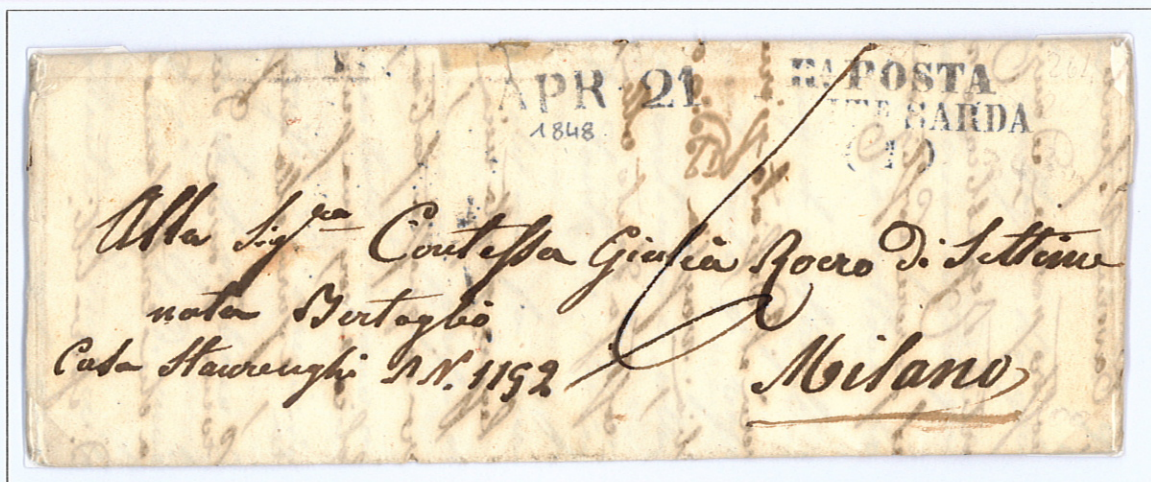 APR 21
1848
Rª POSTA
SARDA
(1)
Alla Sigra Contessa Giulia Roero Di Settime
nata Bertoglio
Casa N. 1192
Milano